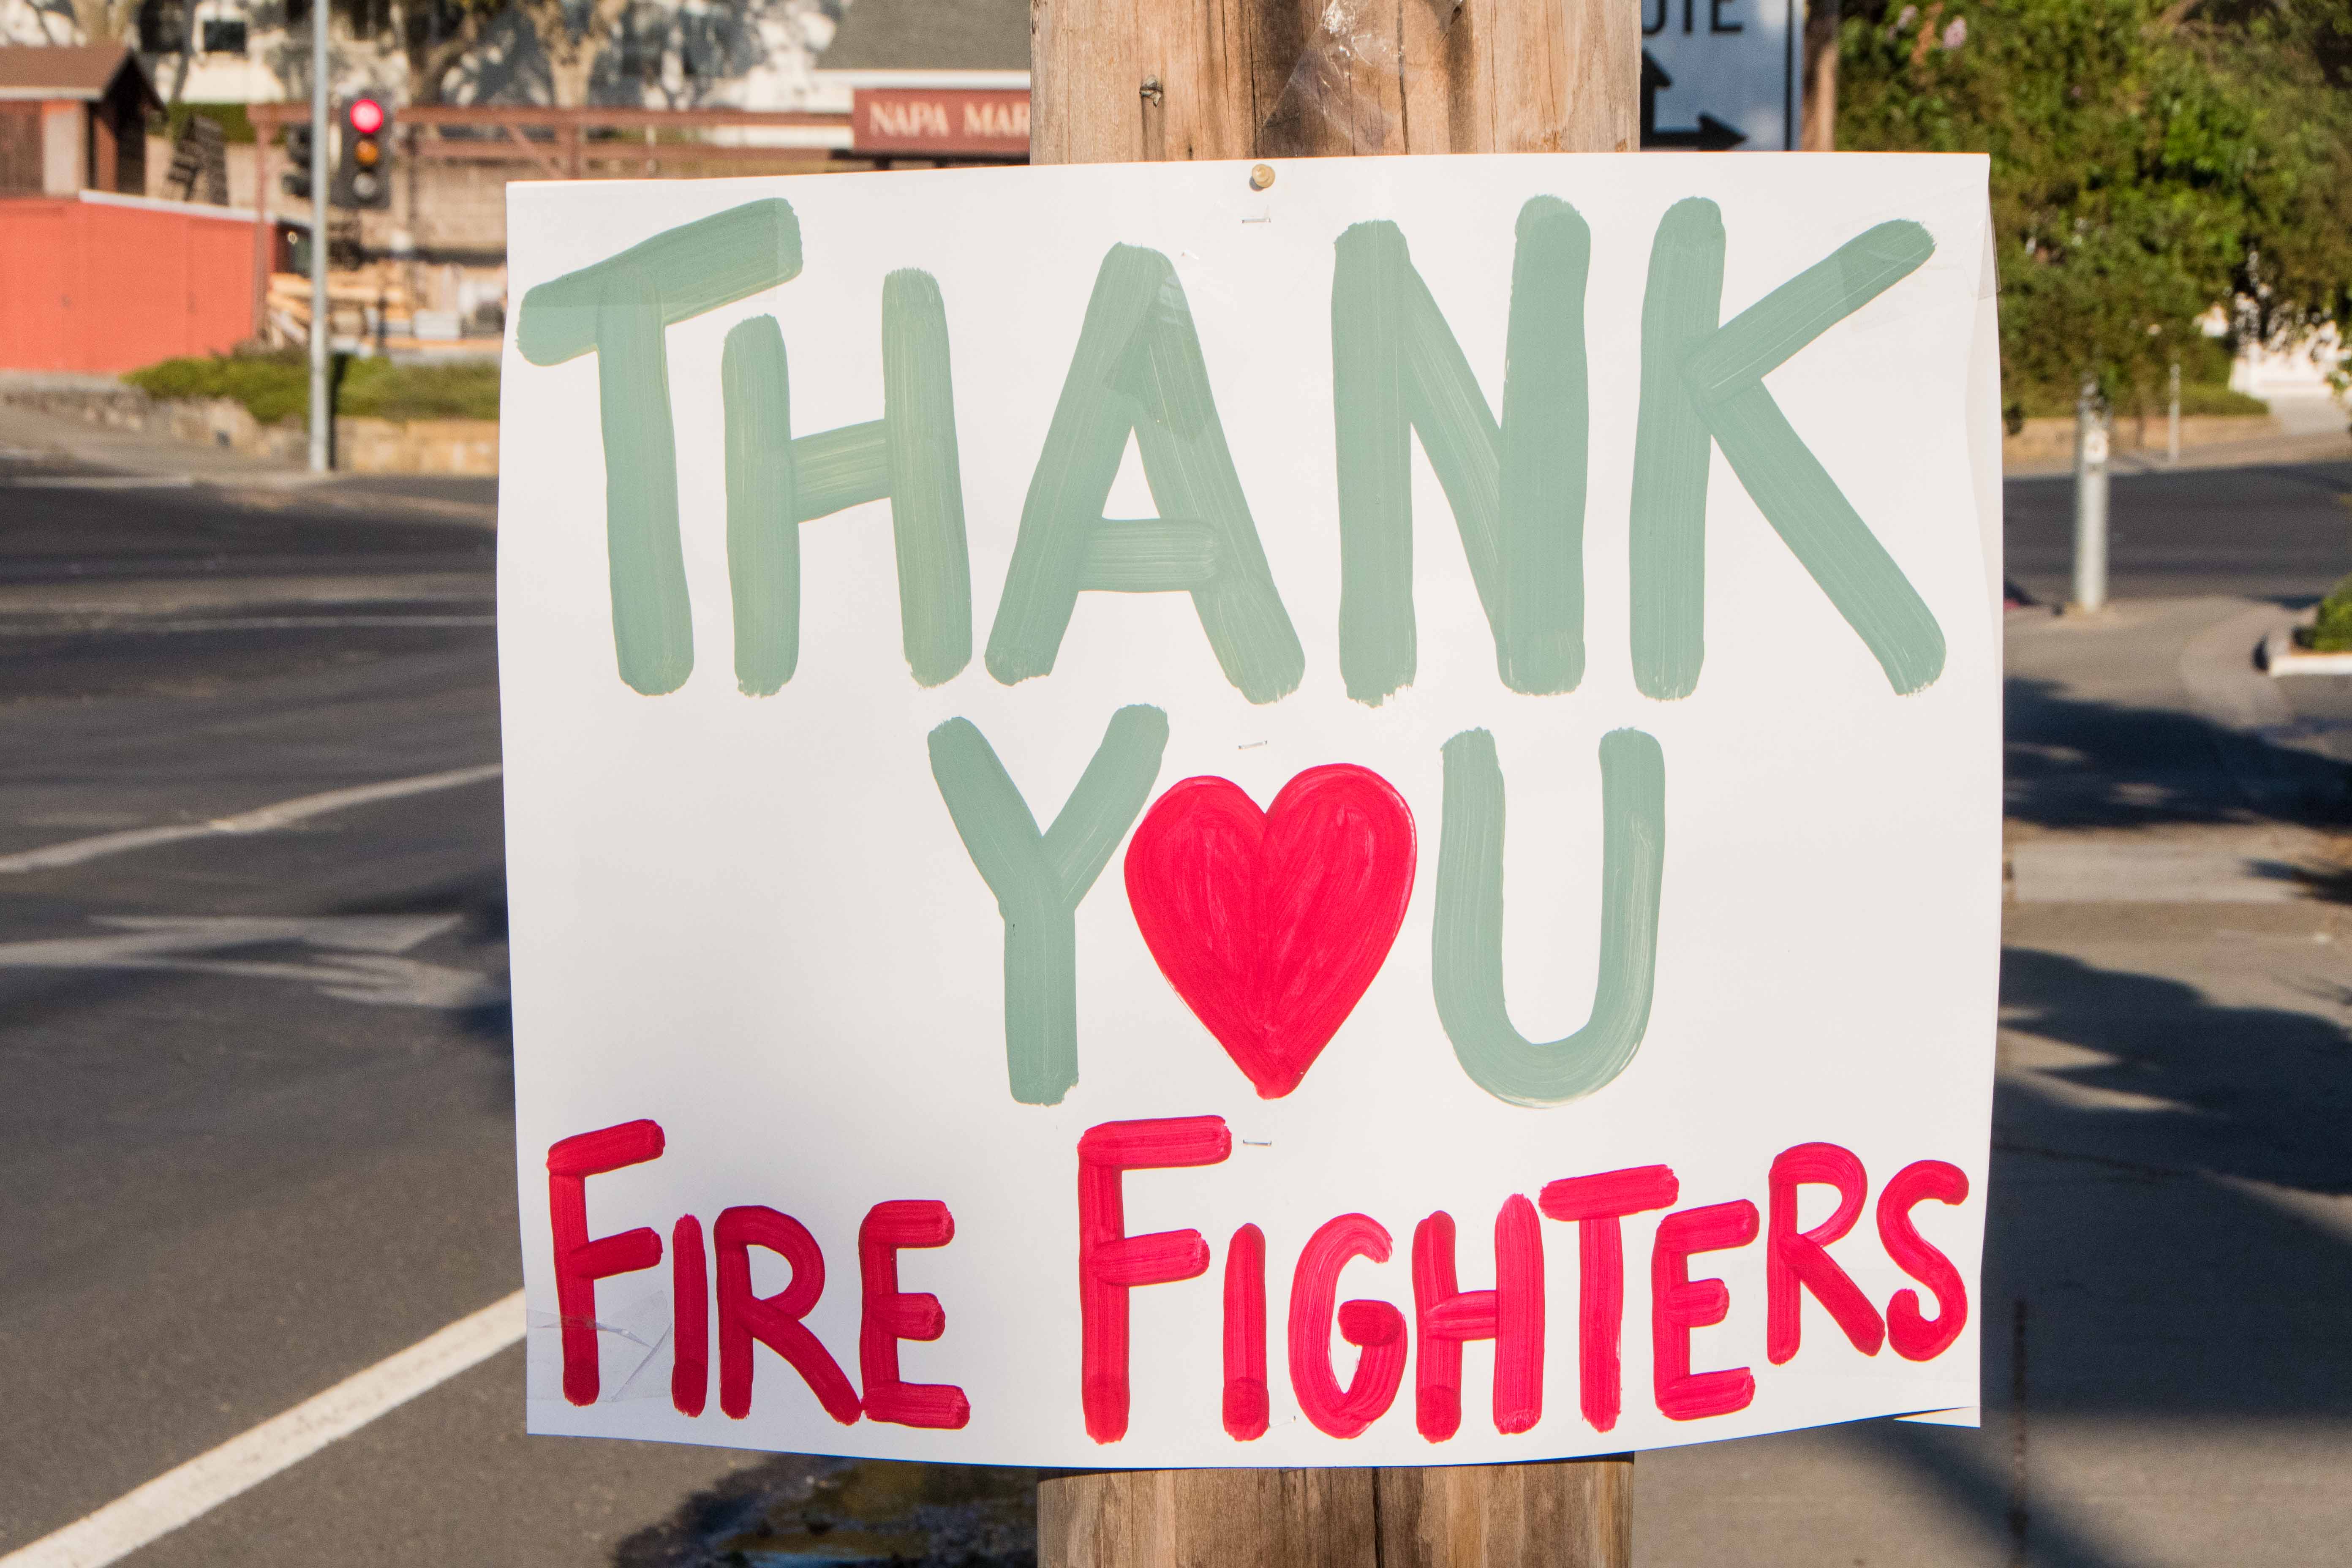 NAPA MAR
THANK
Y❤U
FIRE FIGHTERS